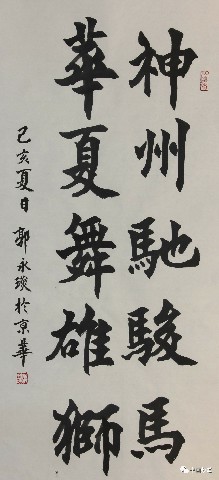 神州馳駿馬
華夏舞雄獅
己亥夏日 郭永琰於京華